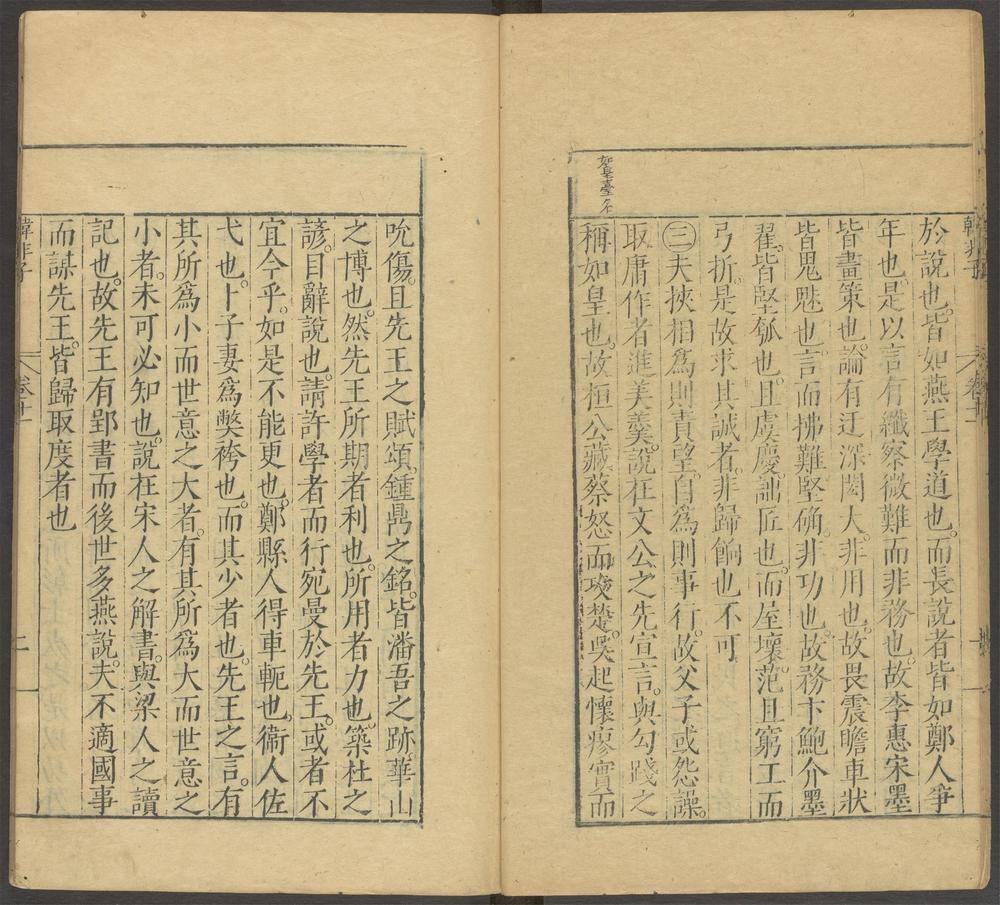 如皇臺名
韓非子 卷十一
於說也。皆如燕王學道也。而長說者皆如鄭人爭
年也。是以言有纖察微難而非務也。故李惠宋墨
皆畫策也。論有迂深閎大。非用也。故畏震瞻車狀
皆鬼魅也。言而拂難堅确。非功也。故務卞鮑介墨
翟。皆堅瓠也。且虞慶詘匠也。而屋壞。范且窮工而
弓折。是故求其誠者。非歸餉也不可
㊂夫挾相爲則責望。自爲則事行。故父子或怨譟。
取庸作者進美羹。說在文公之先宣言。與勾踐之
稱如皇也。故桓公藏蔡怒而攻楚。吳起懷瘳實而
吮傷。且先王之賦頌。鍾鼎之銘。皆潘吾之跡。華山
之博也。然先王所期者利也。所用者力也。築杜之
諺。目辭說也。請許學者而行宛曼於先王。或者不
宜今乎。如是不能更也。鄭縣人得車軛也。衞人佐
弋也。卜子妻爲獘袴也。而其少者也。先王之言。有
其所爲小而世意之大者。有其所爲大而世意之
小者。未可必知也。說在宋人之解書。與梁人之讀
記也。故先王有郢書而後世多燕說。夫不適國事
而謀先王。皆歸取度者也
韓非子 卷十一